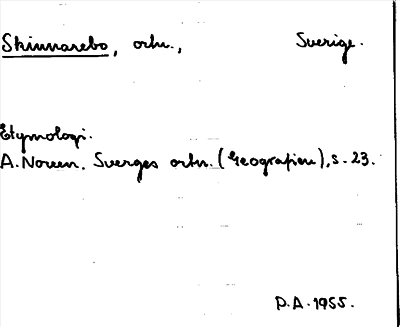 Skinnarebo, ortn., Sverige.
Etymologi.
A. Noreen. Sverges ortn. (Geografien), s. 23.
P.A. 1955.